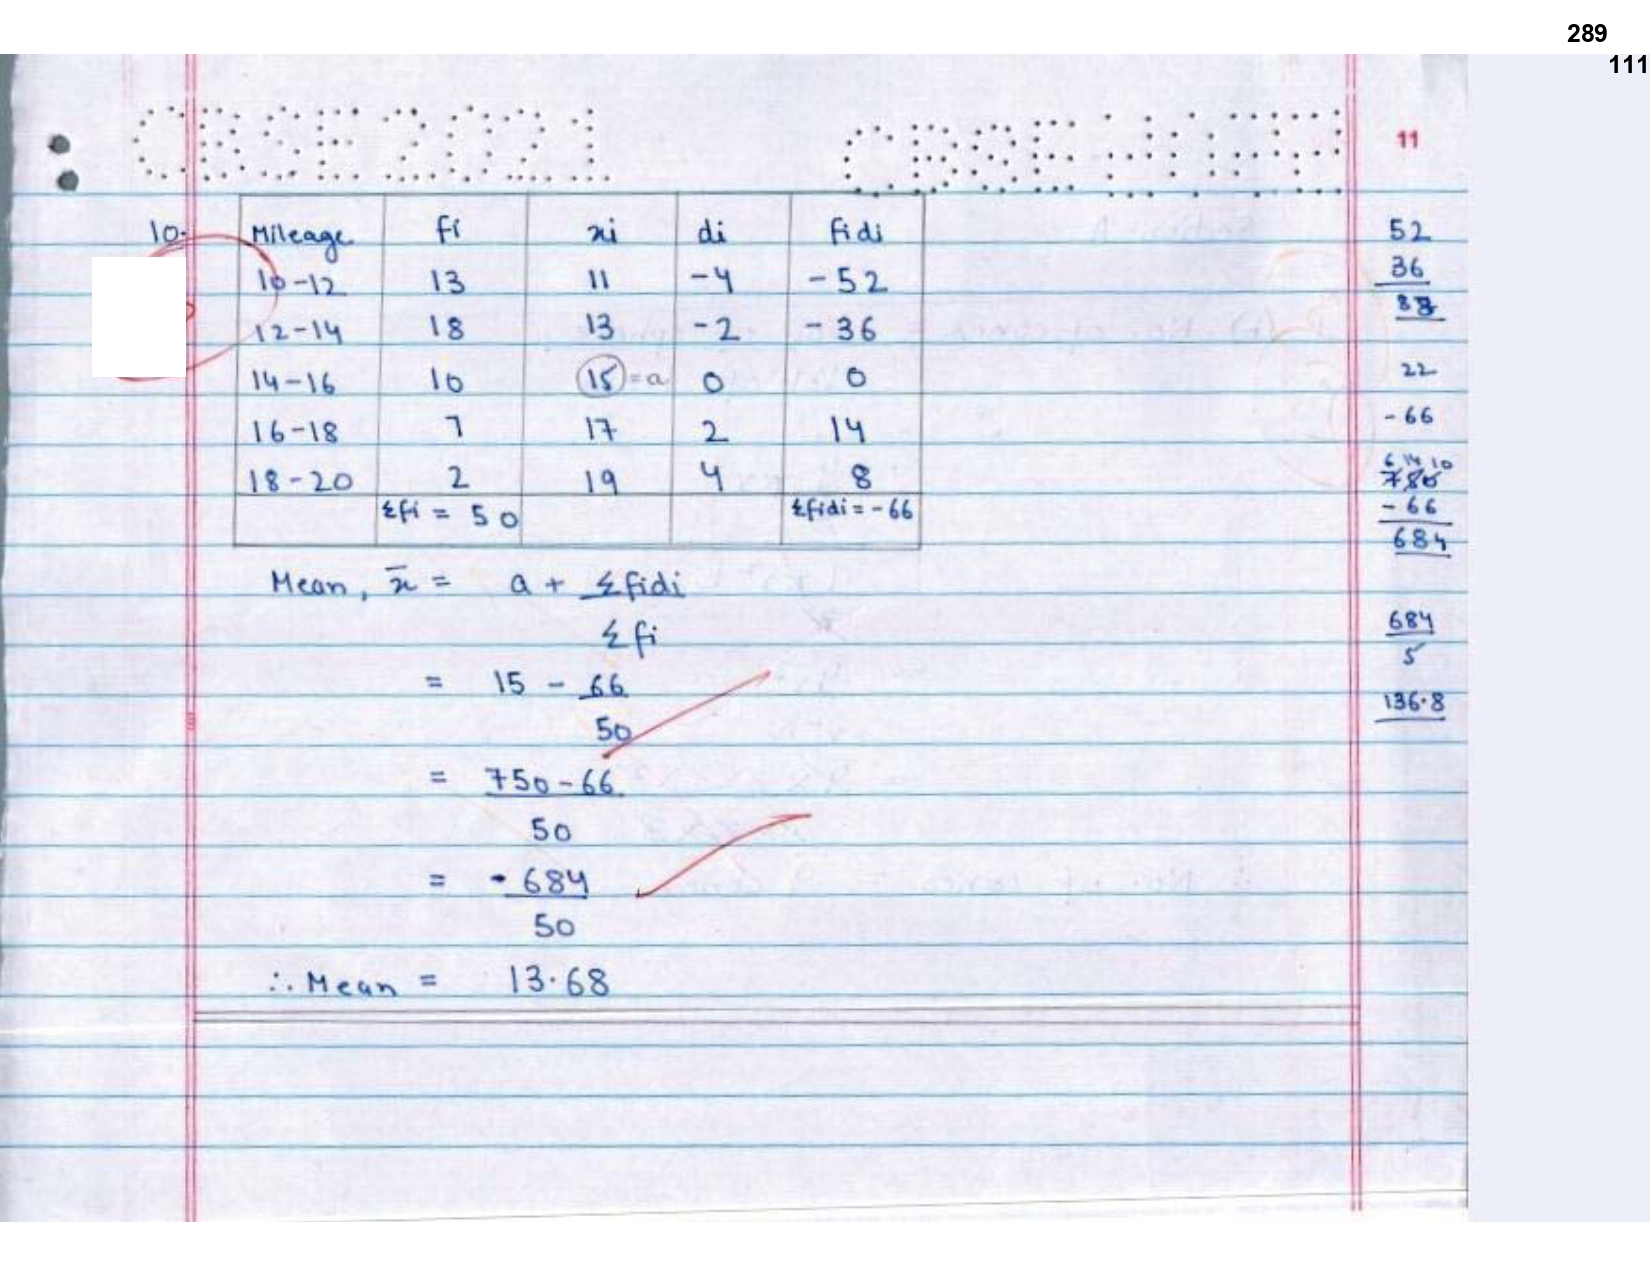 289
111
CBSE 2021
11
10. Mileage fi xi di fidi
10-12 13 11 -4 -52
12-14 18 13 -2 -36
14-16 10 15 = a 0 0
16-18 7 17 2 14
18-20 2 19 4 8
Σfi = 50 Σfidi = -66
Mean, x̄ = a + Σfidi
Σfi
= 15 - 66
50
= 750-66
50
= 684
50
∴ Mean = 13.68
52
36
88
22
-66
6 14 10
750
- 66
684
684
5
136.8